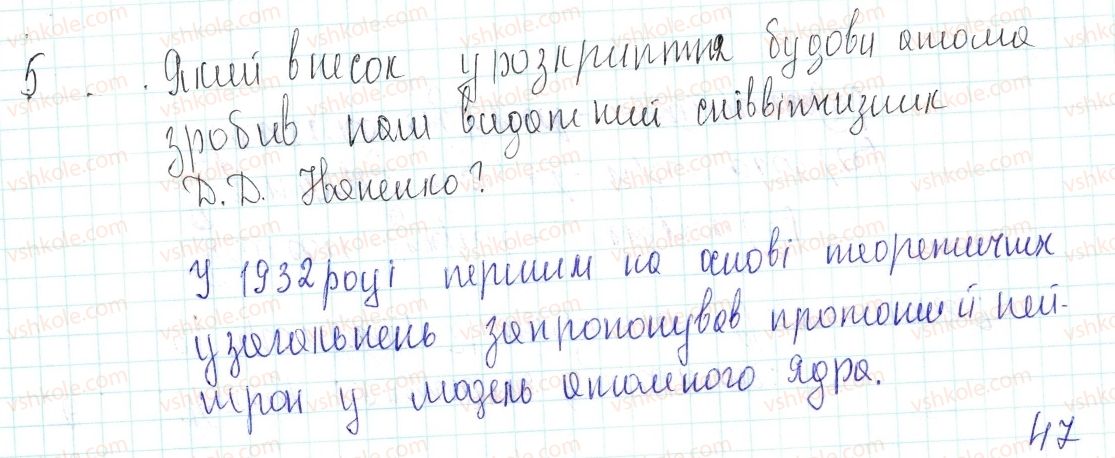 5 . . Який внесок у розкриття будови атома
зробив наш видатний співвітчизник
Д.Д. Іваненко?
У 1932 році першим на основі теоретичних
узагальнень запропонував протонний ней-
трон у модель атомного ядра.
47